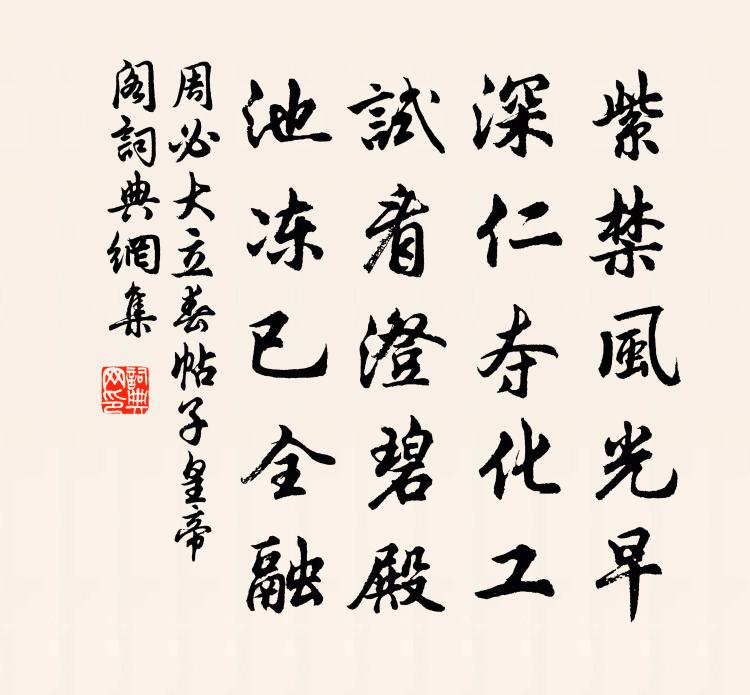 紫禁風光早
深仁夺化工
試看澄碧殿
池冻已全融
周必大立春帖子皇帝
阁詞典網集
詞典網印